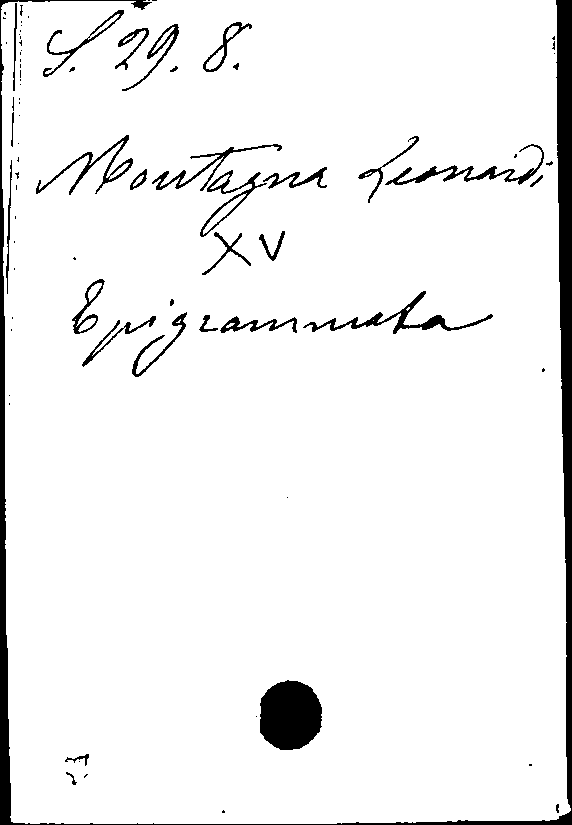 S. 29. 8.
Montagna Leonardi
XV
Epigrammata